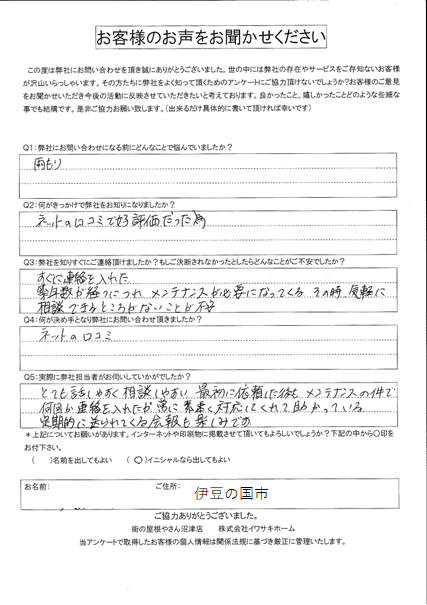 お客様のお声をお聞かせください
この度は弊社にお問い合わせを頂き誠にありがとうございました。世の中には弊社の存在やサービスをご存知ないお客様
が沢山いらっしゃいます。その方たちに弊社をよく知って頂くためのアンケートにご協力頂けないでしょうか?お客様のご意見
をお聞かせいただき今後の活動に反映させていただきたいと考えております。良かったこと、嬉しかったことどのような些細な
事でも結構です。是非ご協力お願い致します。(出来るだけ具体的に書いて頂ければ幸いです)
Q1:弊社にお問い合わせになる前にどんなことで悩んでいましたか?
雨もり
Q2:何がきっかけで弊社をお知りになりましたか?
ネットの口コミで好評価だった為
Q3:弊社を知りすぐにご連絡頂けましたか?もしご決断されなかったとしたらどんなことがご不安でしたか?
すぐに連絡を入れた
築年数が経つにつれ メンテナンスが必要になってくる その時 気軽に
相談できるところがないことが不安
Q4:何が決め手となり弊社にお問い合わせ頂きましたか?
ネットの口コミ
Q5:実際に弊社担当者がお伺いしていかがでしたか?
とても話しやすく相談しやすい 最初に依頼した後も メンテナンスの件で
何回か連絡を入れたが 常に素早く対応してくれて助かっている
定期的に送られてくる会報も楽しみです
*上記についてお願いがあります。インターネットや印刷物に掲載させて頂いてもよろしいでしょうか?下記の中から○印を
お付下さい。
( )名前を出してもよい (○)イニシャルなら出してもよい
お名前: ご住所:
伊豆の国市
ご協力ありがとうございました。
街の屋根やさん沼津店 株式会社イワサキホーム
当アンケートで取得したお客様の個人情報は関係法規に基づき厳正に管理いたします。